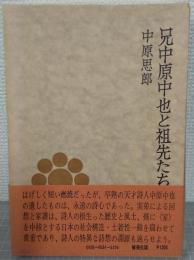 兄中原中也と祖先たち
中原思郎
はげしく短い燃焼だったが、早熟の天才詩人中原中也
の遺したものは、永遠の詩心であった。実弟による回
想と家譜は、詩人の根生った歴史と風土、殊に〈家〉
を中核とする日本の社会構造・土着性一般を窺わせて
貴重であり、詩人の特異な詩想の深源も巡らせよう。
審美社版